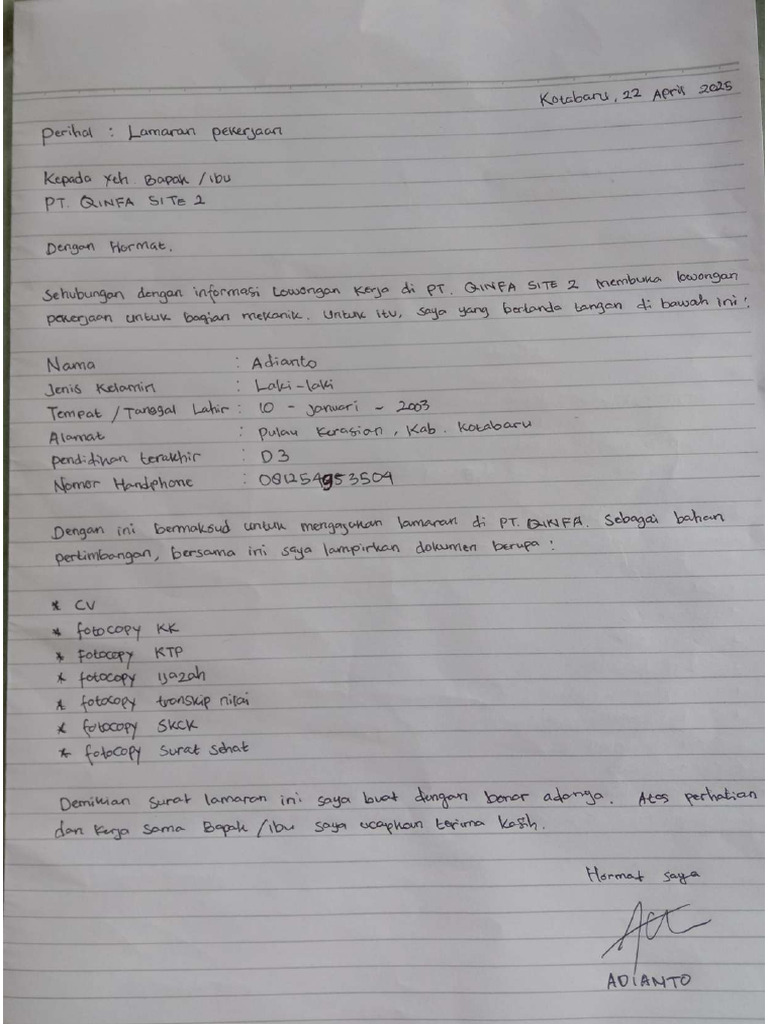 Kotabaru, 22 April 2025
Perihal : Lamaran pekerjaan
Kepada Yth. Bapak /ibu
PT. QINFA SITE 2
Dengan Hormat.
Sehubungan dengan informasi Lowongan Kerja di PT. QINFA SITE 2 membuka lowongan
pekerjaan untuk bagian mekanik. Untuk itu, saya yang bertanda tangan di bawah ini :
Nama : Adianto
Jenis Kelamin : Laki-laki
Tempat / Tanggal Lahir : 10 - Januari - 2003
Alamat : Pulau Kerasian, Kab. Kotabaru
pendidikan terakhir : D3
Nomor Handphone : 081254953504
Dengan ini bermaksud untuk mengajukan lamaran di PT. QINFA. Sebagai bahan
pertimbangan, bersama ini saya lampirkan dokumen berupa :
* CV
* fotocopy KK
* Fotocopy KTP
* fotocopy ijazah
* fotocopy transkip nilai
* fotocopy SKCK
* fotocopy Surat sehat
Demikian surat lamaran ini saya buat dengan benar adanya. Atas perhatian
dan Kerja sama Bapak /ibu saya ucapkan terima kasih.
Hormat saya
ADIANTO